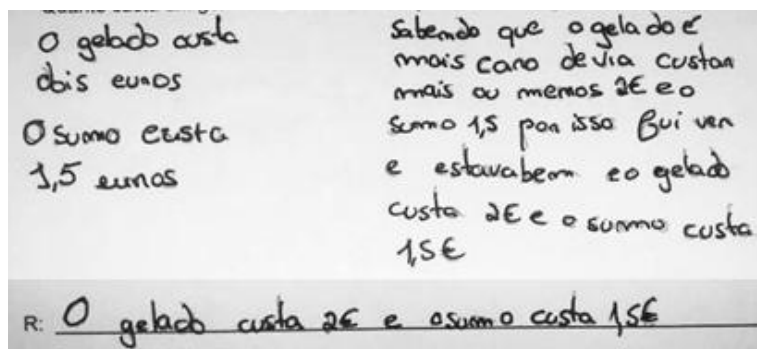 O gelado custa
dois euros
O sumo custa
1,5 euros
Sabendo que o gelado é
mais caro devia custar
mais ou menos 2€ e o
sumo 1,5 por isso fui ver
e estava bem e o gelado
custa 2€ e o sumo custa
1,5€
R: O gelado custa 2€ e o sumo custa 1,5€